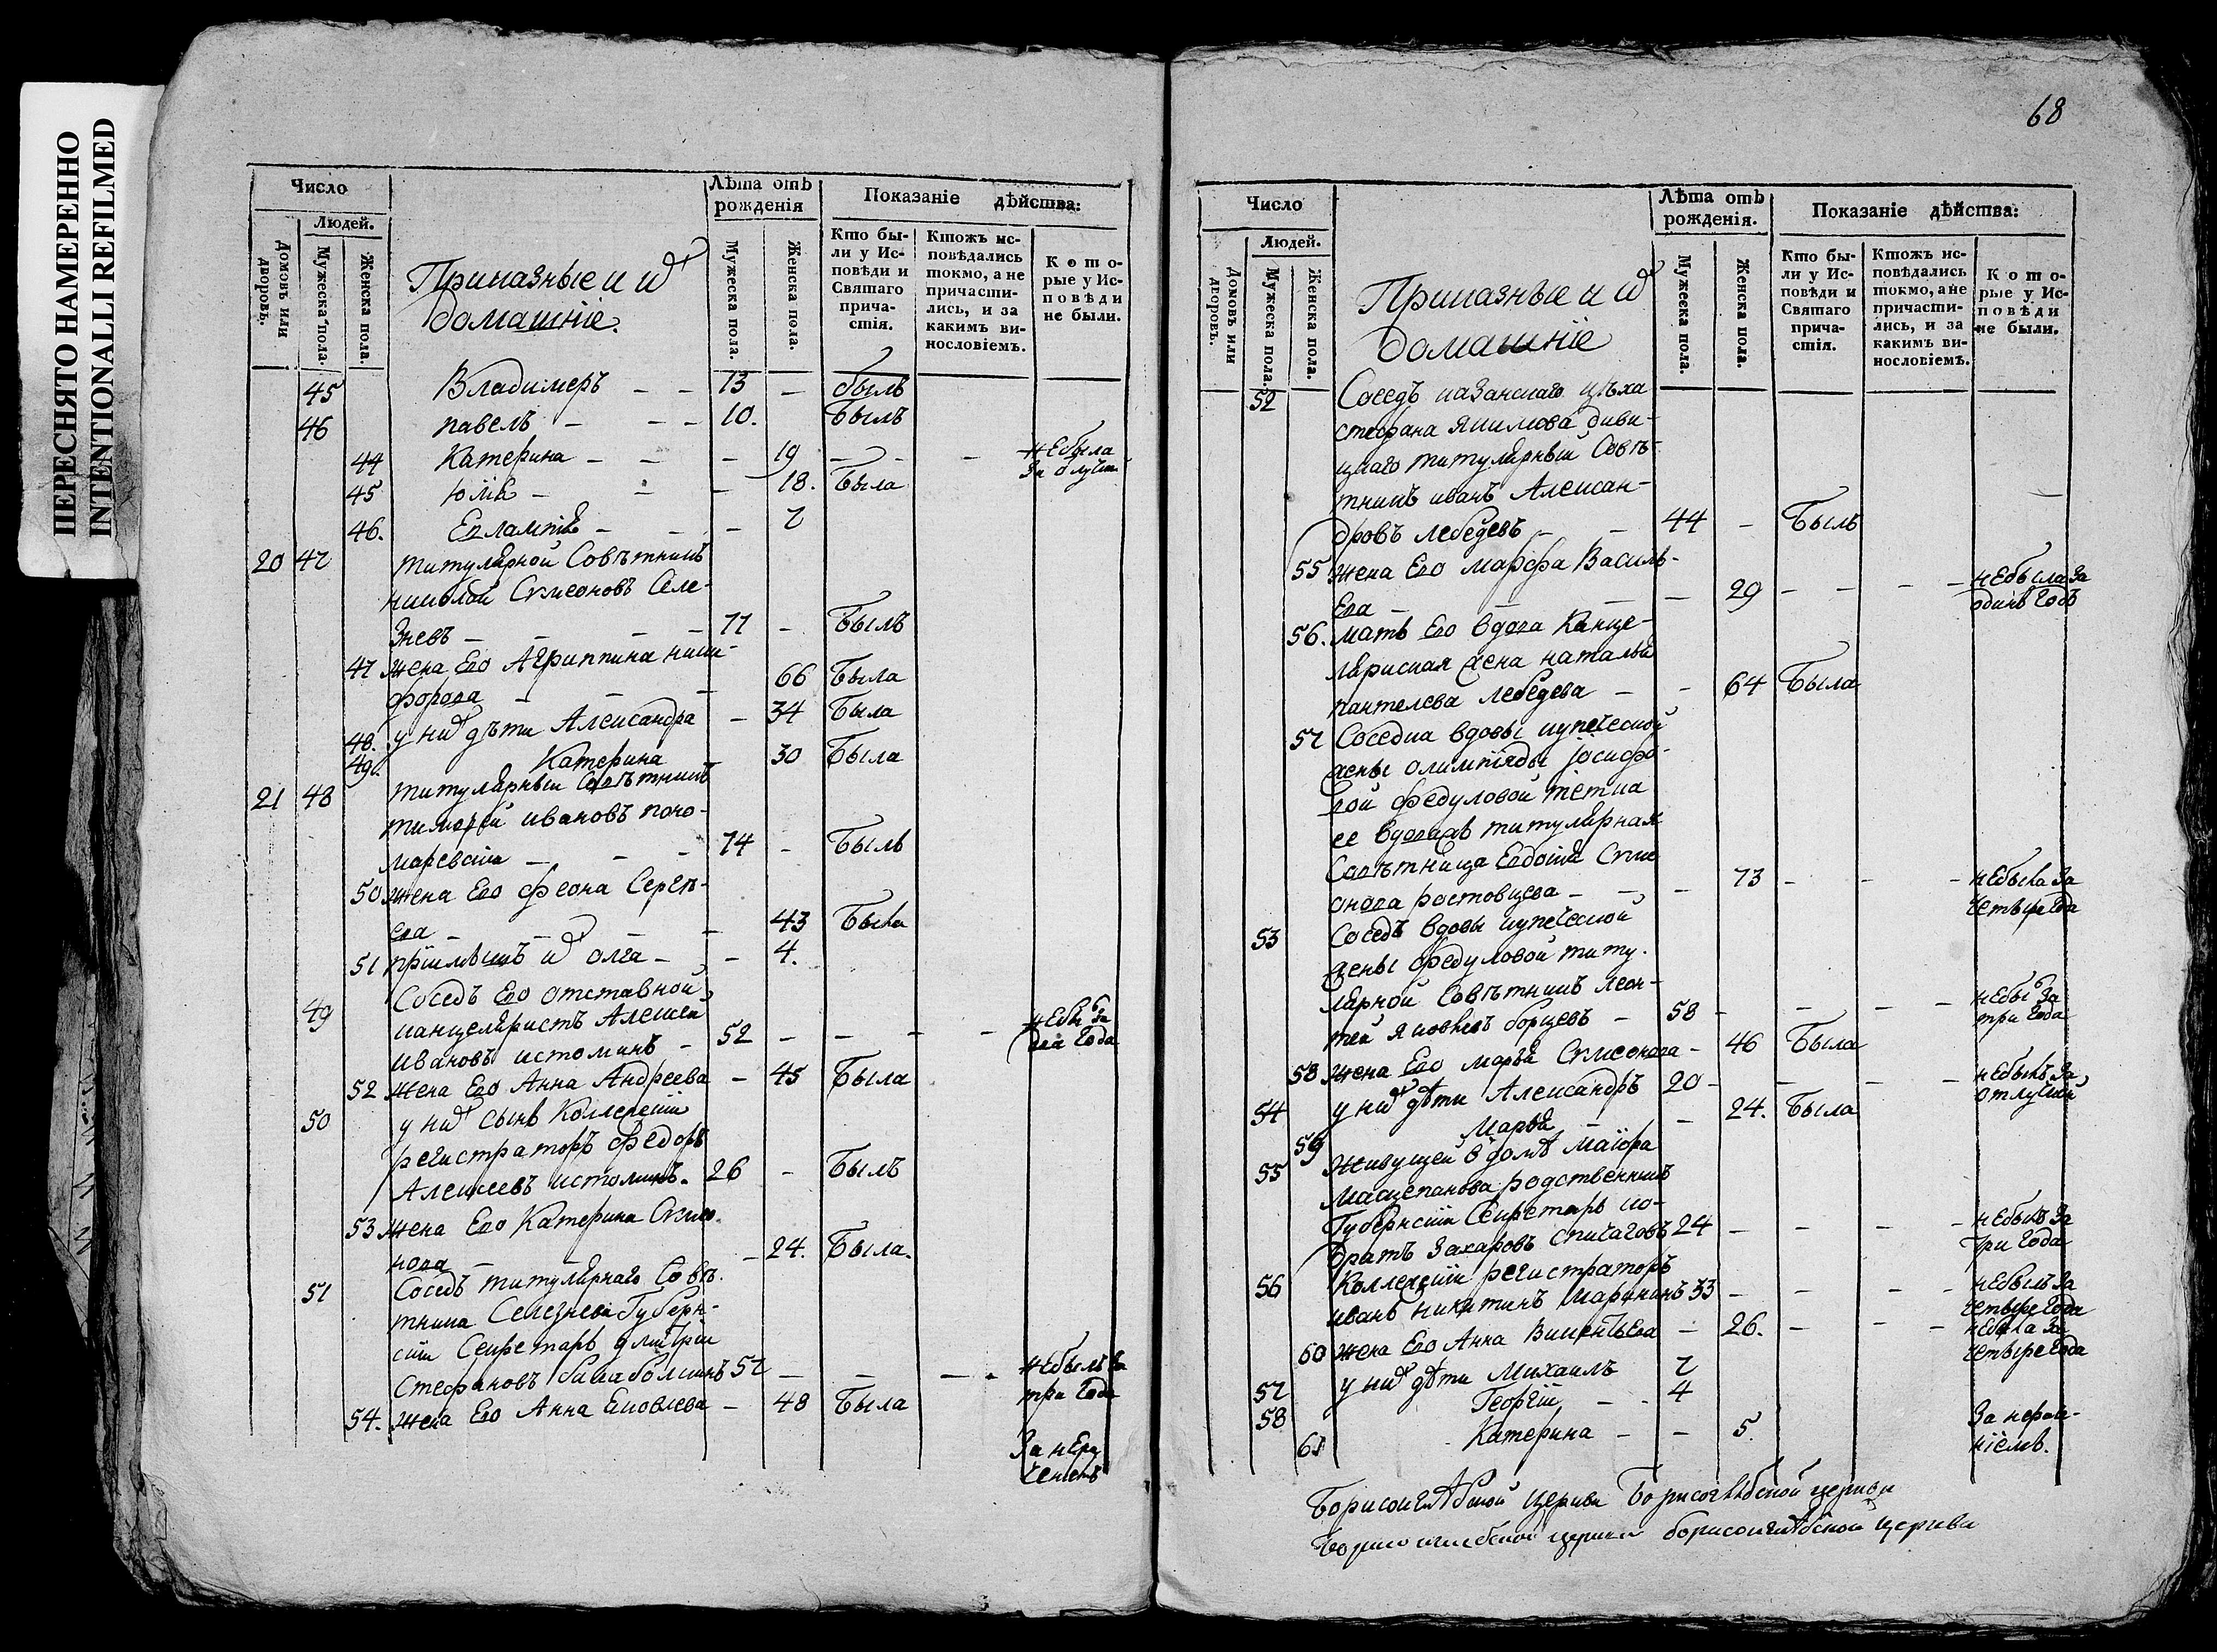 ПЕРЕСНЯТО НАМЕРЕННО
INTENTIONALLI REFILMED
Число
Людей.
Домовъ или дворовъ.
Мужеска пола.
Женска пола.
Приказные и их
домашніе.
Лѣта отъ рожденія
Мужеска пола.
Женска пола.
Показаніе дѣйства:
Кто были у Исповѣди и Святаго причастія.
Ктожъ исповѣдались токмо, а не причастились, и за какимъ винословіемъ.
Которые у Исповѣди не были.
45 Владимеръ - - 13 - былъ
46 павелъ - - - 10. Былъ
44 Катерина - - - 19 - - - небыла
За отлучк
45 Юлія - - - 18. Была
46. Евлампія - - - 7
20 47 титулярной Совѣтникъ
николай Симеоновъ Селе-
зневъ - - - - 71 - Былъ
47 жена Его Агриппина ники-
форова - - - 66 Была
48. у них дѣти Александра - 34 Была
49. Катерина 30 Была
21 48 титулярный Совѣтникъ
тимофей ивановъ поно-
маревскій - - - 74 - Былъ
50 жена Его феона Сергѣ-
ева - - - - 43 Была
51 пріимышъ их олга - - 4.
49 Соседъ Его отставной
канцеляристъ Алексеи
ивановъ истоминъ - 52 - - - - небы За
два Года
52 жена Его Анна Андреева - 45 Была
50 у них сынъ Коллежскій
регистраторъ федоръ
Алексеевъ истоминъ. 26 - Былъ
53 жена Его Катерина Симео-
нова - - - 24. Была.
51 Соседъ титулярнаго Совѣ-
тника Селезнева Губерн-
скій Секретарь дмитрій
Стефановъ 57 - - - - небылъ За
три Года
54. жена Его Анна Яковлева - 48 Была
За нера
ченіемъ
68
Число
Людей.
Домовъ или дворовъ.
Мужеска пола.
Женска пола.
Приказные и их
домашніе
Лѣта отъ рожденія.
Мужеска пола.
Женска пола.
Показаніе дѣйства:
Кто были у Исповѣди и Святаго причастія.
Ктожъ исповѣдались токмо, а не причастились, и за какимъ винословіемъ.
Которые у Исповѣди не были.
52 Соседъ казанскаго цѣха
стефана якимова диви-
цкаго титулярный Совѣ-
тникъ иванъ Алексан-
дровъ лебедевъ - - 44 - Былъ
55 жена Его марфа Василь-
Ева - - - - 29 - - - - небыла За
одинъ Годъ
56. мать Его вдова Канце-
ляриская жена наталья
пантелева лебедева - - 64 Была
57 Соседка вдовы купеческой
жены олимпіяды іосифо-
вой федуловой тетка
ее вдовая титулярная
Совѣтница Евдокія Симе
онова ростовцева - - - 73 - - - небыла За
четыре Года
53 Соседъ вдовы купеческой
жены федуловой титу-
лярной Совѣтникъ леон-
тей яковлевъ борщевъ - 58 - - - - небы За
три Года
58 жена Его марья Симеонова - 46 Была
54 у них дѣти Александръ 20 - - - - небылъ За
отлучкой
59 Марья - - 24. Была
55 Живущей в домѣ маіора
родственникъ
Губернскій Секретарь ко-
дратъ Захаровъ спичаговъ 24 - - - - небылъ За
три Года
56 Коллежскій регистраторъ
иванъ никитинъ 33 - - - - небылъ За
четыре Года
60 жена Его Анна ВикентьЕва - 26. - - - небыла За
четыре Года
57 у них дѣти Михаилъ 7
58 Георгій - - 4
61 Катерина - - 5.
За нераче-
ніемъ.
Борисоглѣбской Церкви Борисоглѣбской церкви
Борисоглебской церкви борисоглѣбской Церкви